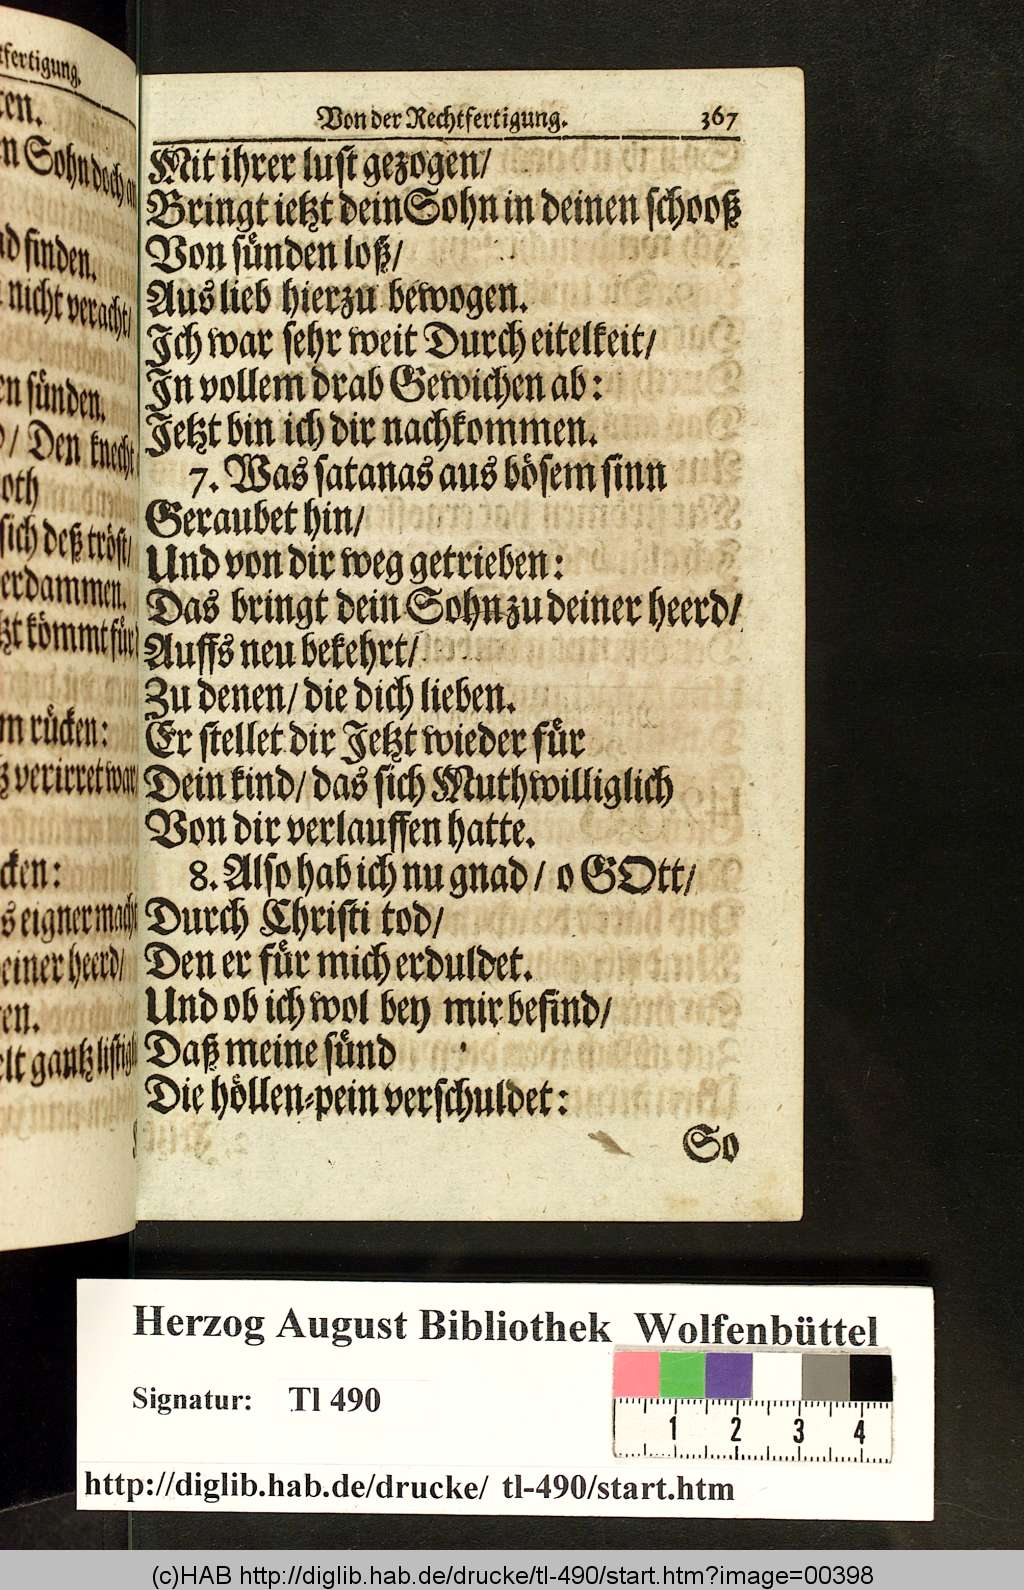 tfertigung.
ren.
en Sohn doch an
nd finden.
nicht veracht/
en sünden.
/ Den knecht
oth
sich deß tröst/
erdammen.
tzt kömmt für
m rücken:
verirret war
cken:
s eigner macht
einer heerd/
en.
elt gantz listig
Von der Rechtfertigung. 367
Mit ihrer lust gezogen/
Bringt ietzt dein Sohn in deinen schooß
Von sünden loß/
Aus lieb hierzu bewogen.
Ich war sehr weit Durch eitelkeit/
In vollem drab Gewichen ab:
Jetzt bin ich dir nachkommen.
7. Was satanas aus bösem sinn
Geraubet hin/
Und von dir weg getrieben:
Das bringt dein Sohn zu deiner heerd/
Auffs neu bekehrt/
Zu denen/ die dich lieben.
Er stellet dir Jetzt wieder für
Dein kind/ das sich Muthwilliglich
Von dir verlauffen hatte.
8. Also hab ich nu gnad/ o GOtt/
Durch Christi tod/
Den er für mich erduldet.
Und ob ich wol bey mir befind/
Daß meine sünd
Die höllen-pein verschuldet:
So
Herzog August Bibliothek Wolfenbüttel
Signatur: Tl 490
1 2 3 4
http://diglib.hab.de/drucke/ tl-490/start.htm
(c)HAB http://diglib.hab.de/drucke/tl-490/start.htm?image=00398